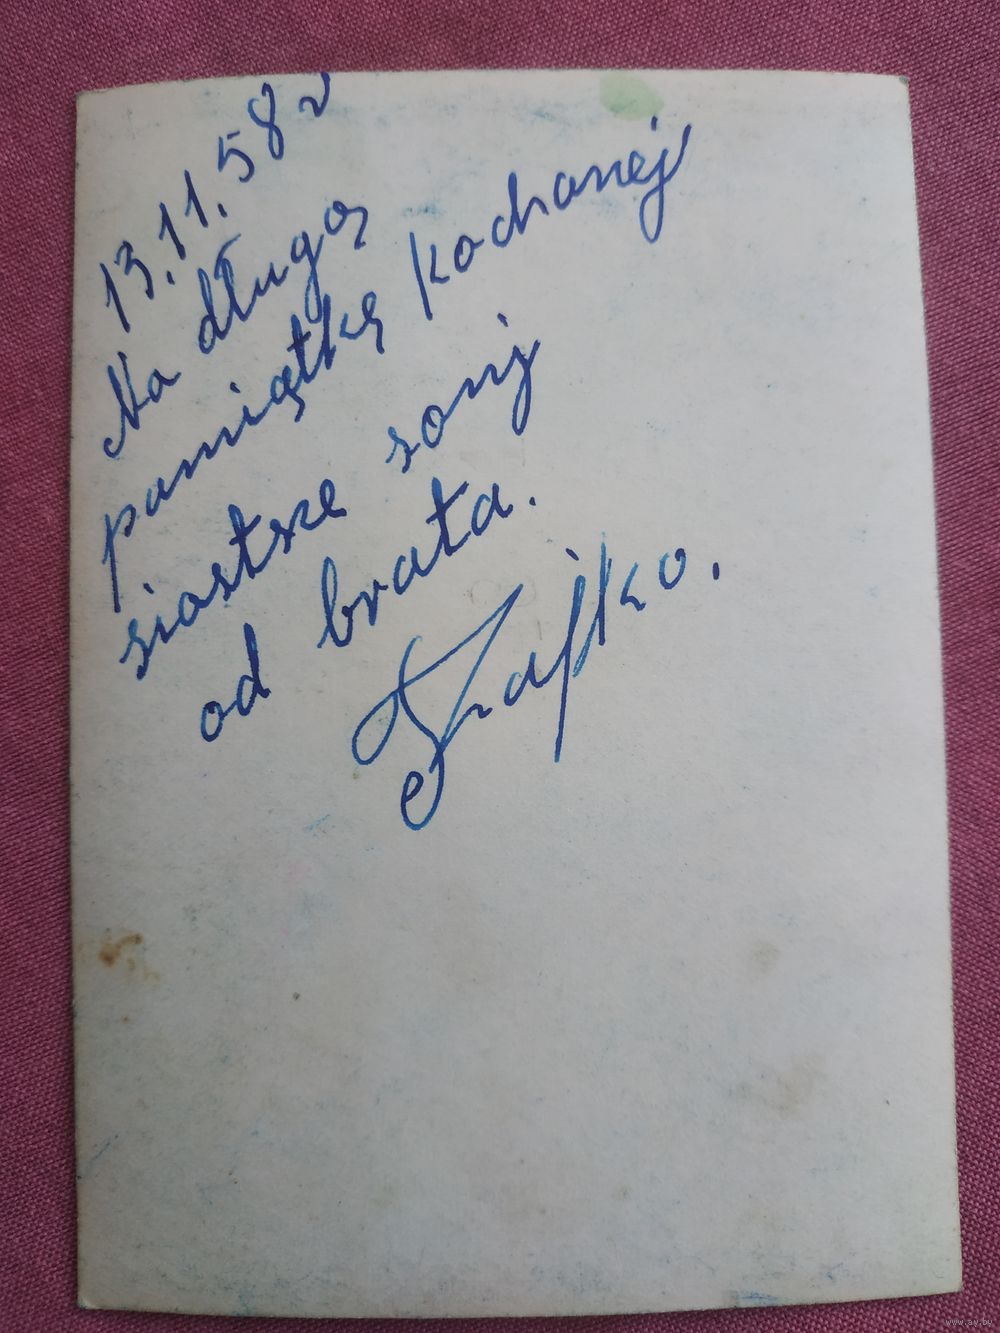 13.11.58 r
Na długą
pamiątkę kochanej
siostsze sonij
od brata.
www.ay.by